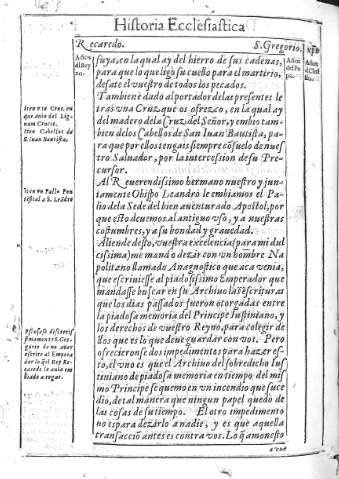 Historia Ecclesiastica
Recaredo.
S. Gregorio.
suya, en la qual ay del hierro de sus cadenas,
para que lo que ligó su cuello para el martirio,
desate el vuestro de todos los pecados.
Tambien è dado al portador de las presentes le
tras vna Cruz que os ofrezco, en la qual ay
del madero de la Cruz del Señor, y embio tam
bien de los Cabellos de San Iuan Bautista, pa
ra que por ellos tengais siempre cõsuelo de nuestro
Saluador, por la intercession de su Pre-
cursor.
Al Reuerendissimo hermano nuestro y jun
tamente Obispo Leandro le embiamos el Pa
lio de la Sede del bien auenturado Apostol, por
que esto deuemos al antiguo vso, y a nuestras
costumbres, y a su bondad y grauedad.
Aliende desto, vuestra excelencia (para mi dul
cissima) me mandò dezir con vn hombre Na
politano llamado Anagnostico que aca venia,
que escriuiesse al piadosissimo Emperador que
mandasse buscar en su Archiuo las escrituras
que los dias passados fueron otorgadas entre
la piadosa memoria del Principe Iustiniano, y
los derechos de vuestro Reyno, para colegir de
llos que es lo que deue guardar con vos. Pero
ofrecieronse dos impedimentos para hazer es-
to, el vno es que el Archiuo del sobredicho Ius
tiniano de piadosa memoria en tiempo del mis
mo Principe se quemo en vn incendio que suce
dio, de tal manera que ningun papel quedò de
las cosas de su tiempo. El otro impedimento
no es para dezirlo a nadie, y es que aquella
transacciõ antes es contra vos. Lo q̃ amonesto
Iten vna Cruz en
que auia del Lig-
num Crucis.
Iten Cabellos de
S. Iuan Bautista.
Iten vn Pallio Pon
tifical a S. Leãdro